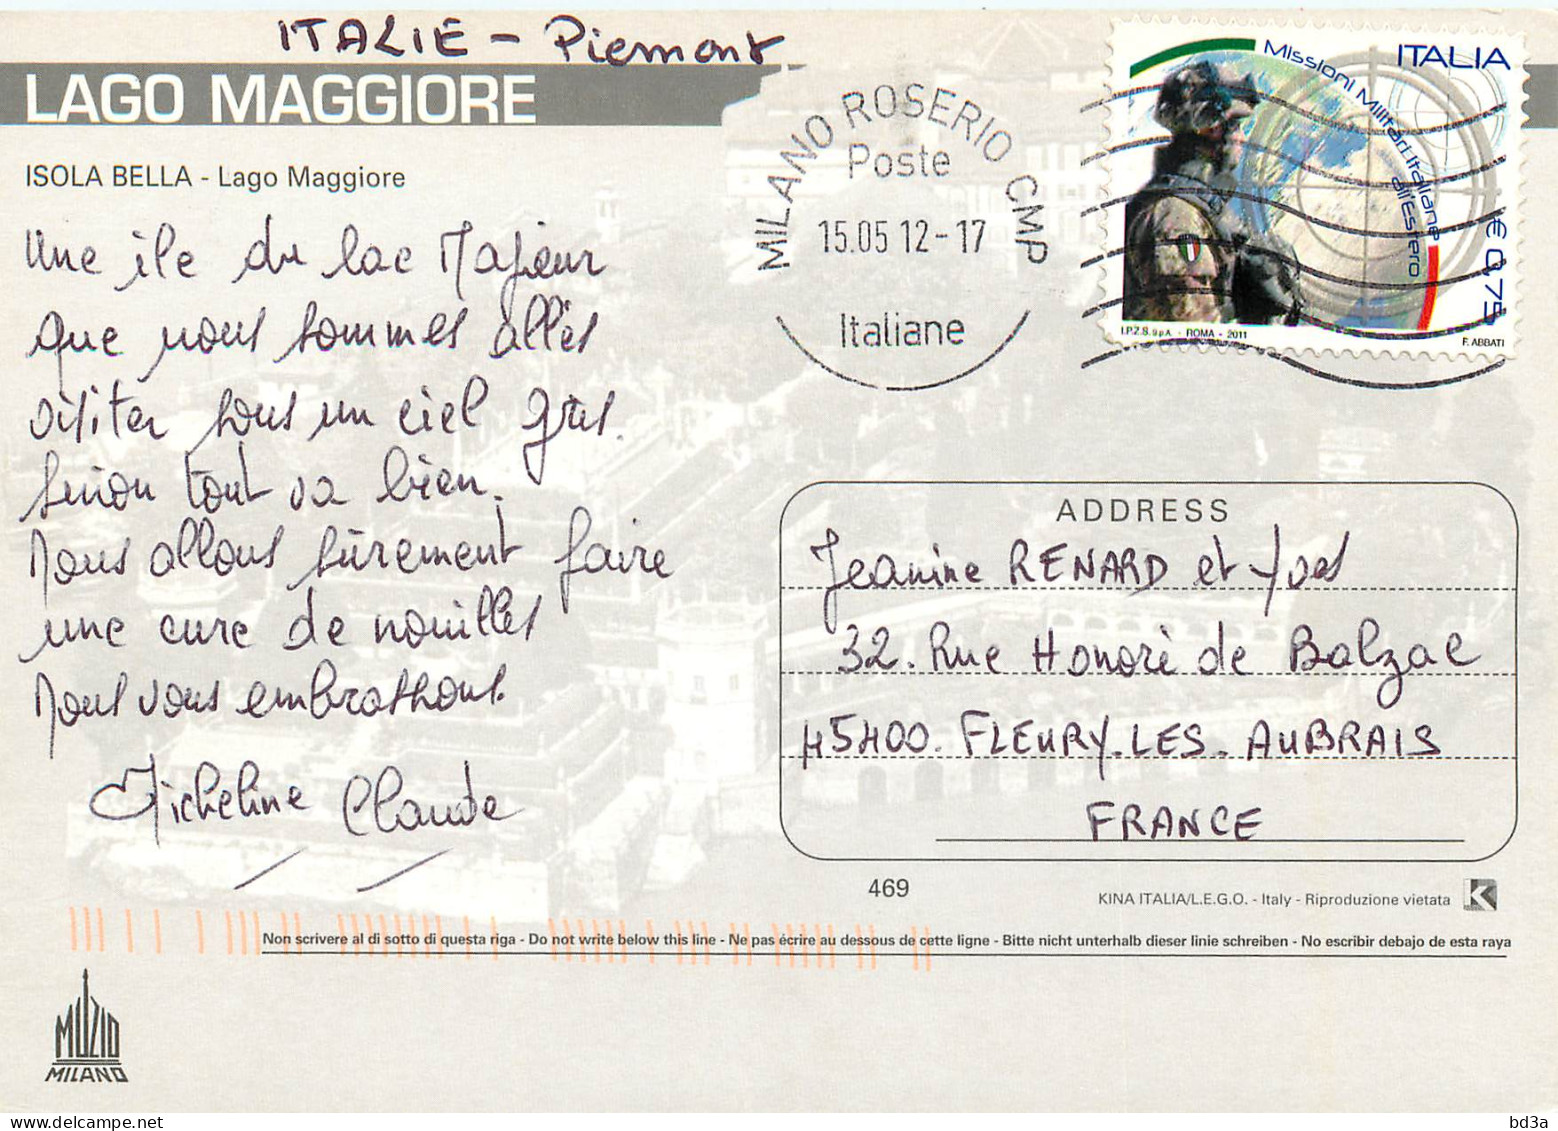 ITALIE - Piemont
LAGO MAGGIORE
ISOLA BELLA - Lago Maggiore
Une île du lac Majeur
que nous sommes allés
visiter sous un ciel gris.
sinon tout va bien.
Nous allons sûrement faire
une cure de nouilles
Nous vous embrassons.
Micheline Claude
MILANO ROSERIO CMP
Poste
15.05 12-17
Italiane
ITALIA
Missioni Militari Italiane
all'Estero
€ 0,75
I.P.Z.S. S.p.A. - ROMA - 2011
F. ABBATI
ADDRESS
Jeanine RENARD et Yves
32. Rue Honoré de Balzac
45400. FLEURY-LES-AUBRAIS
FRANCE
469
KINA ITALIA/L.E.G.O. - Italy - Riproduzione vietata
K
Non scrivere al di sotto di questa riga - Do not write below this line - Ne pas écrire au dessous de cette ligne - Bitte nicht unterhalb dieser linie schreiben - No escribir debajo de esta raya
MUZIO
MILANO
bd3a